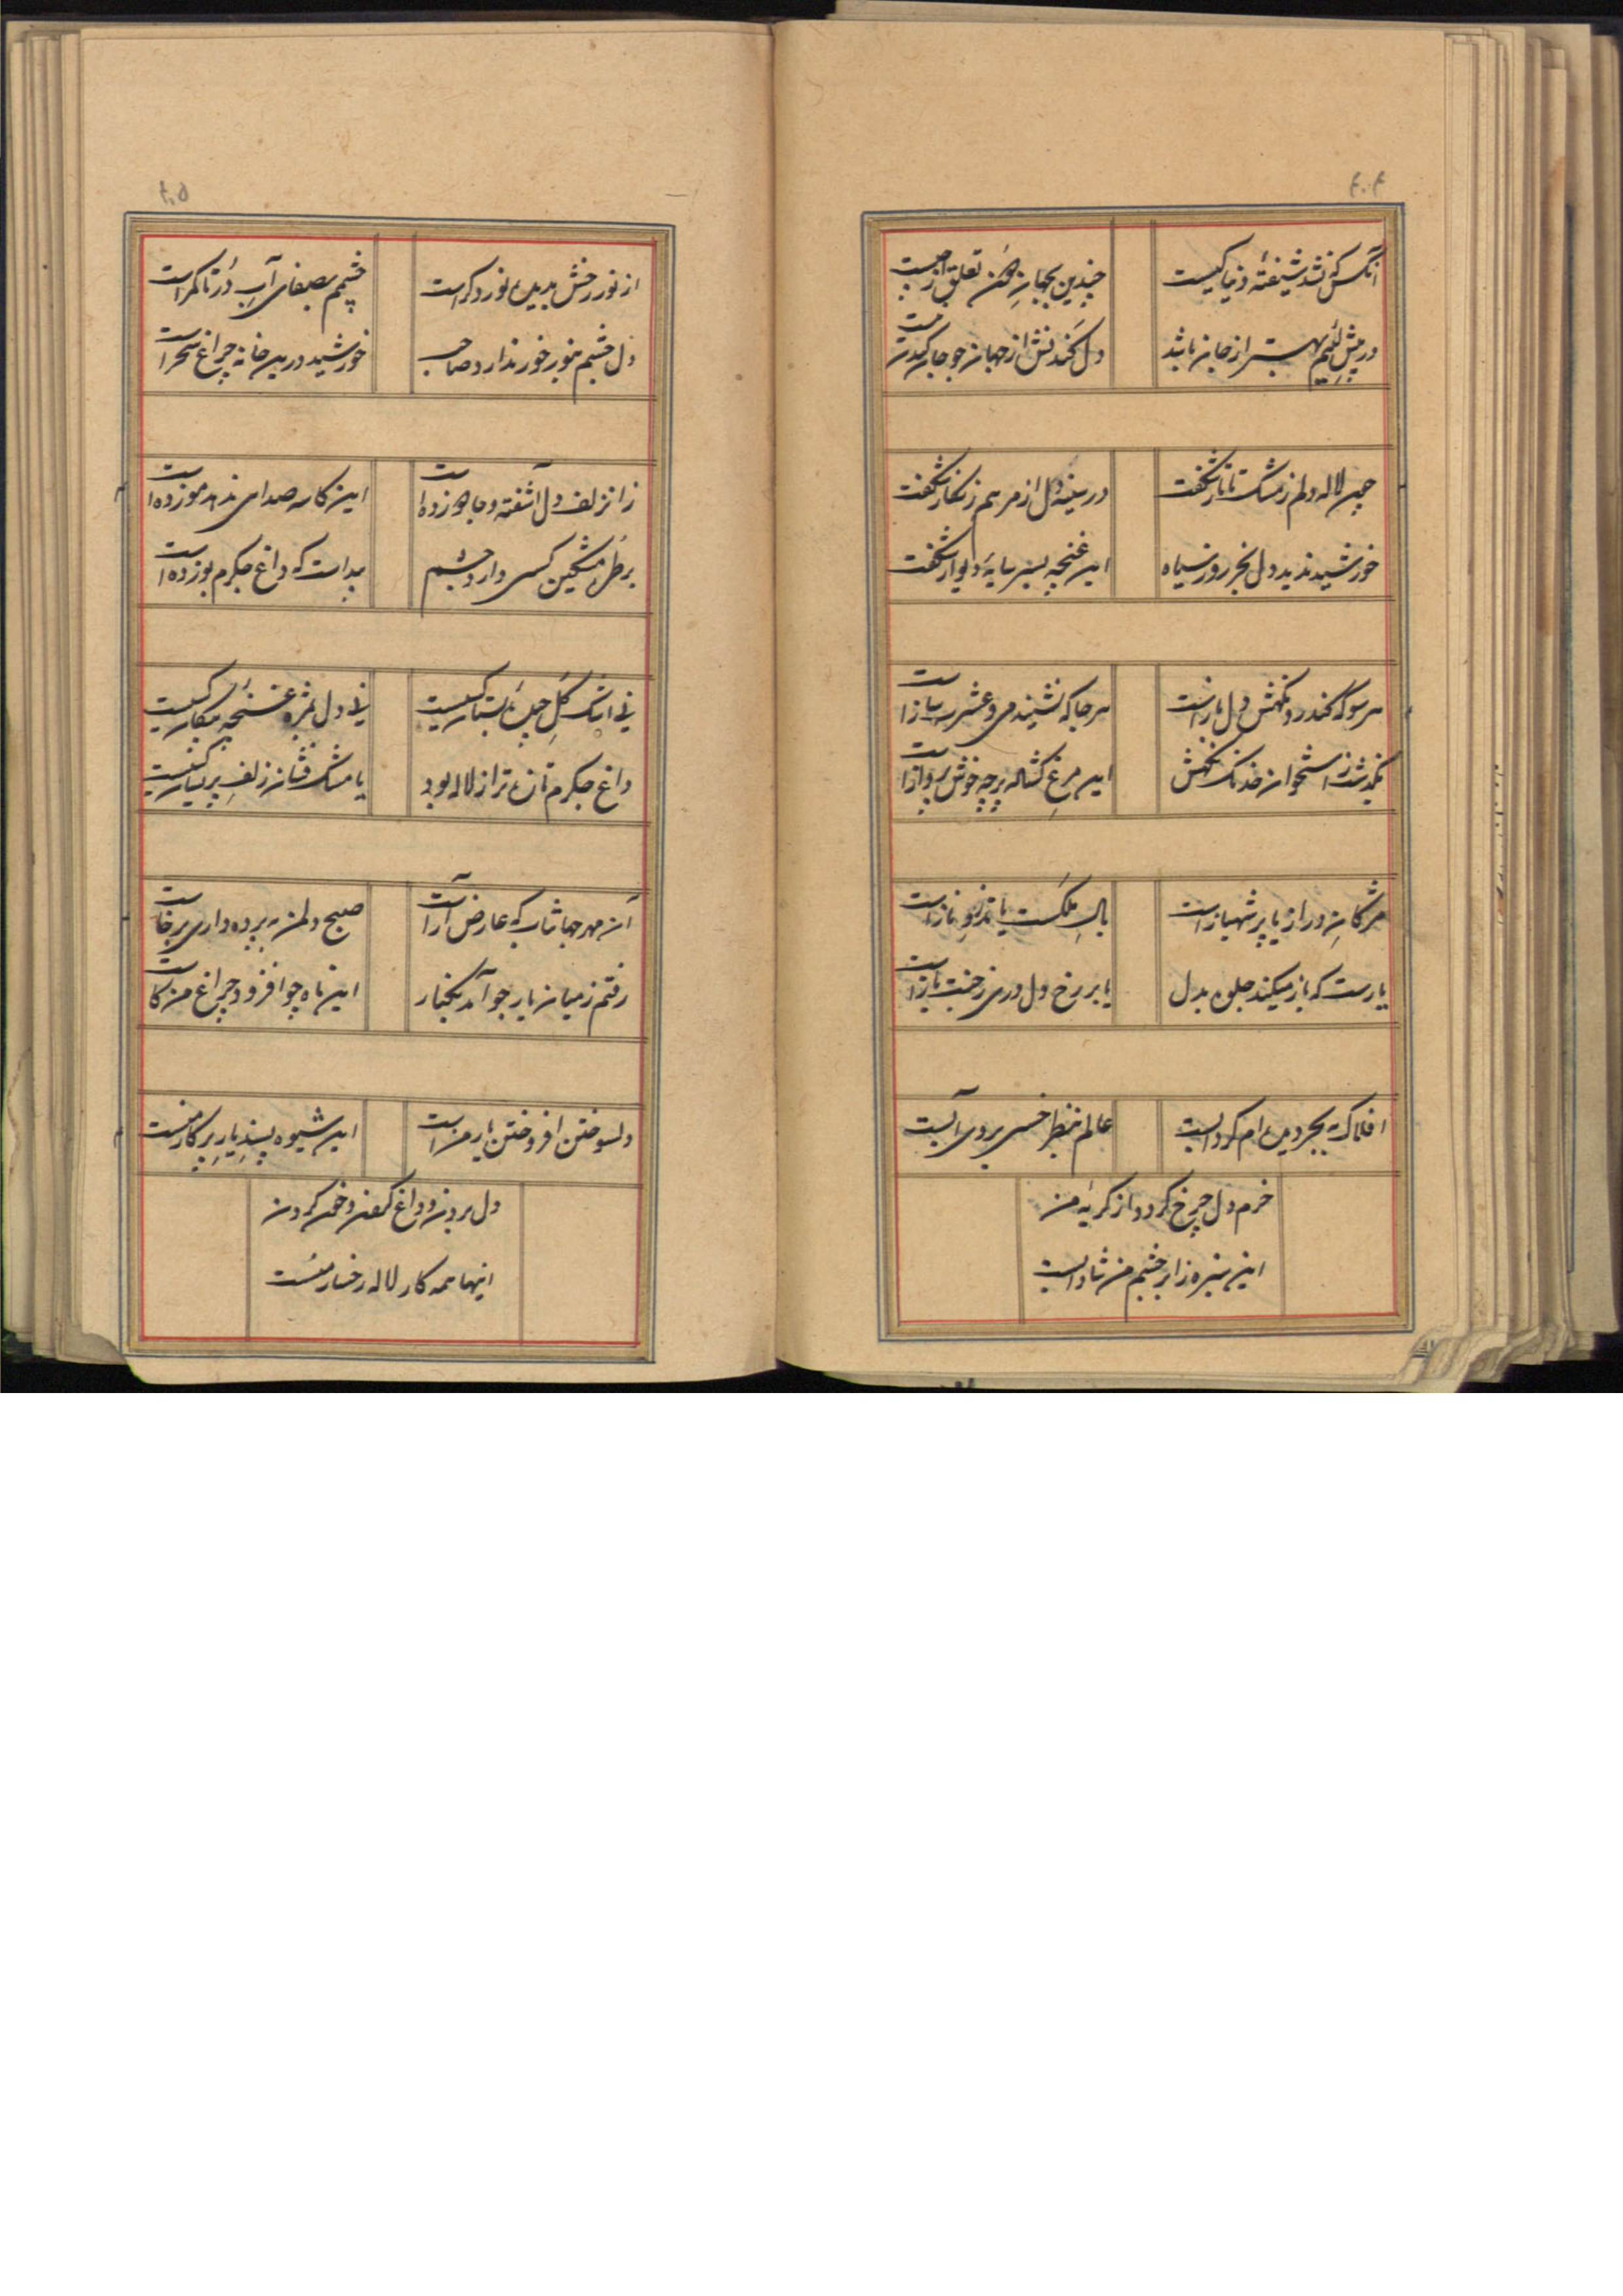 ۴۰۴
آنکس که نشد شیفتهٔ دنیا کیست
چندین بجهانِ کهن تعلق از چیست
در پیش لئیم بهتر از جان باشد
دل کندنش از جهان چو جان کندن
چون لاله دلم ز مشک تاتار شکفت
در سینه گل از مرهم زنگار شکفت
خورشید ندید دل بجز روز سیاه
این غنچه بسیر سایهٔ دیوار شکفت
هر سو که کند رو نگهش دل بازست
هر جا که نشیند می و عشرت سازست
نگذشت ز استخوان خدنگ نگهش
این مرغ گشاده پر چه خوش پروازست
مژکانِ دراز یا پر شهبازست
بالِ ملکست یا تذروِ نازست
یارست که باز میکند جلوه بدل
یا بر رخ دل دری ز جنت بازست
افلاک که بحر دیده‌ام گردابست
عالم بنظر خسی بروی آبست
خرم دل چرخ گردد از گریهٔ من
این سبزه ز ابر چشم من شادابست
۴۰۵
از نور رخش بدیده نور دگرست
چشمم بصفای آبِ دُر تا کمرست
دل چشم بنور خور ندارد صاحب
خورشید درین خانه چراغ سحرست
زان زلف دل آشفته و جا هو زده است
این کاسه صدای ندهد مو زده است
بر طرهٔ مشکین کسی دارد چشم
پیداست که داغ جکرم بو زده است
نی اشک گل چیده بستان کیست
نی دل بمژه غنچهٔ پیکان کیست
داغ جکرم تازه‌تر از لاله بود
یا مشک فشان زلفِ پریشان کیست
آن مهر جهانتاب که عارض آراست
صبح دلمن به پرده‌داری برخاست
رفتم ز میان یار چو آمد بکنار
این ماه چو افزود چراغ من کاست
دلسوختن افروختن یار منست
این شیوه پسندِ یارِ پرکار منست
دل بردن و داغ کردن و خون کردن
اینها همه کار لاله رخسار منست